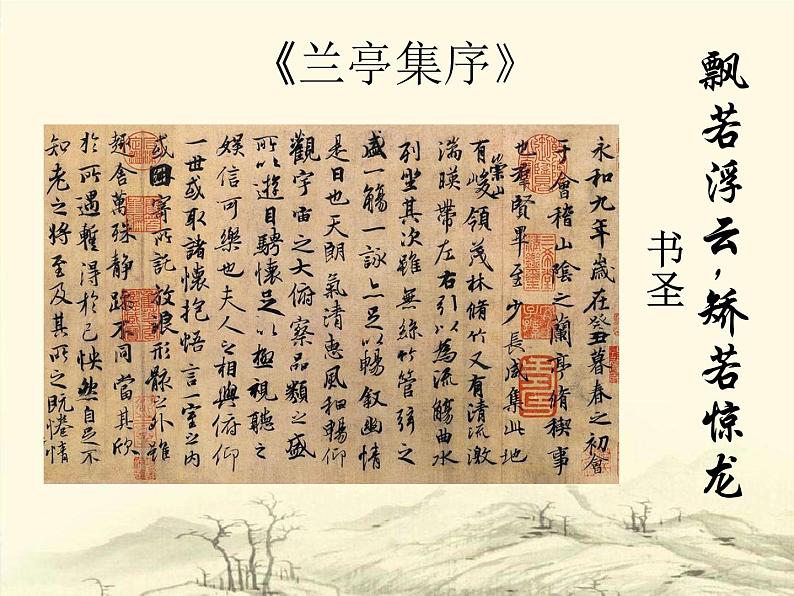 《兰亭集序》
飘若浮云,矫若惊龙
书圣
永和九年歲在癸丑暮春之初會
于會稽山陰之蘭亭脩稧事
也羣賢畢至少長咸集此地
有崇山峻領茂林脩竹又有清流激
湍暎帶左右引以為流觴曲水
列坐其次雖無絲竹管弦之
盛一觴一詠亦足以暢叙幽情
是日也天朗氣清惠風和暢仰
觀宇宙之大俯察品類之盛
所以遊目騁懷足以極視聽之
娛信可樂也夫人之相與俯仰
一世或取諸懷抱悟言一室之內
或因寄所託放浪形骸之外雖
趣舍萬殊靜躁不同當其欣
於所遇暫得於己怏然自足不
知老之將至及其所之既惓情